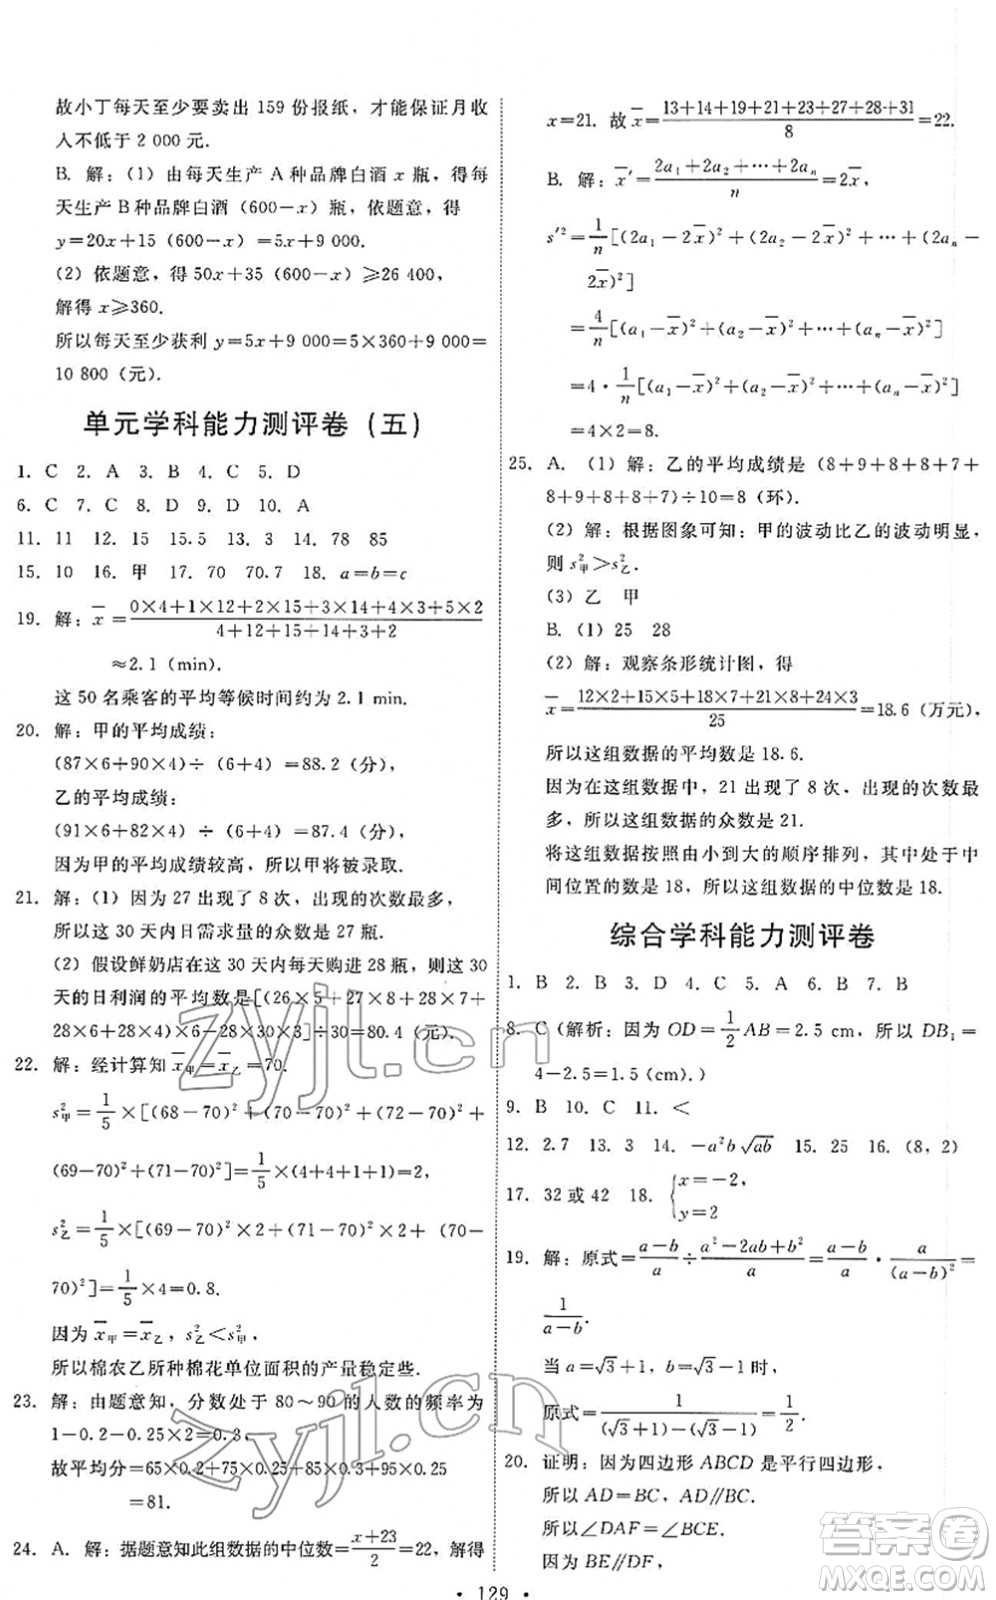 故小丁每天至少要卖出 159 份报纸，才能保证月收
入不低于 2 000 元.
B. 解：(1) 由每天生产 A 种品牌白酒 x 瓶，得每
天生产 B 种品牌白酒 (600－x) 瓶，依题意，得
y=20x+15 (600－x) =5x+9 000.
(2) 依题意，得 50x+35 (600－x) ≥26 400,
解得 x≥360.
所以每天至少获利 y=5x+9 000=5×360+9 000=
10 800 (元).
单元学科能力测评卷 (五)
1. C 2. A 3. B 4. C 5. D
6. C 7. C 8. D 9. D 10. A
11. 11 12. 15 15.5 13. 3 14. 78 85
15. 10 16. 甲 17. 70 70.7 18. a=b=c
19. 解：x̄=(0×4+1×12+2×15+3×14+4×3+5×2)/(4+12+15+14+3+2)
≈2.1 (min).
这 50 名乘客的平均等候时间约为 2.1 min.
20. 解：甲的平均成绩：
(87×6+90×4)÷(6+4)=88.2 (分),
乙的平均成绩：
(91×6+82×4) ÷ (6+4)=87.4 (分),
因为甲的平均成绩较高，所以甲将被录取.
21. 解：(1) 因为 27 出现了 8 次，出现的次数最多，
所以这 30 天内日需求量的众数是 27 瓶.
(2) 假设鲜奶店在这 30 天内每天购进 28 瓶，则这 30
天的日利润的平均数是[(26×5+27×8+28×7+
28×6+28×4)×5－28×30×3]÷30=80.4 (元).
22. 解：经计算知 x̄甲=x̄乙=70.
s²甲=1/5×[(68－70)²+(70－70)²+(72－70)²+
(69-70)²+(71-70)²]=1/5×(4+4+1+1)=2,
s²乙=1/5×[(69－70)²×2+(71－70)²×2+ (70－
70)²]=1/5×4=0.8.
因为 x̄甲=x̄乙, s²乙<s²甲,
所以棉农乙所种棉花单位面积的产量稳定些.
23. 解：由题意知，分数处于 80～90 的人数的频率为
1－0.2－0.25×2=0.3,
故平均分=65×0.2+75×0.25+85×0.3+95×0.25
=81.
24. A. 解：据题意知此组数据的中位数=(x+23)/2=22, 解得
x=21. 故x̄=(13+14+19+21+23+27+28+31)/8=22.
B. 解：x̄′=(2a₁+2a₂+…+2aₙ)/n=2x̄,
s′²=1/n[(2a₁－2x̄)²+(2a₂－2x̄)²+…+(2aₙ－
2x̄)²]
=4/n[(a₁－x̄)²+(a₂－x̄)²+…+(aₙ－x̄)²]
=4・1/n[(a₁－x̄)²+(a₂－x̄)²+…+(aₙ－x̄)²]
=4×2=8.
25. A. (1) 解：乙的平均成绩是 (8+9+8+8+7+
8+9+8+8+7)÷10=8 (环).
(2) 解：根据图象可知：甲的波动比乙的波动明显，
则 s²甲>s²乙.
(3) 乙 甲
B. (1) 25 28
(2) 解：观察条形统计图，得
x̄=(12×2+15×5+18×7+21×8+24×3)/25=18.6 (万元),
所以这组数据的平均数是 18.6.
因为在这组数据中，21 出现了 8 次，出现的次数最
多，所以这组数据的众数是 21.
将这组数据按照由小到大的顺序排列，其中处于中
间位置的数是 18，所以这组数据的中位数是 18.
综合学科能力测评卷
1. B 2. B 3. D 4. C 5. A 6. B 7. B
8. C (解析：因为 OD=1/2 AB=2.5 cm，所以 DB₁=
4－2.5=1.5(cm).)
9. B 10. C 11. <
12. 2.7 13. 3 14. －a²b√ab 15. 25 16. (8, 2)
17. 32 或 42 18. {x=－2, y=2
19. 解：原式=(a－b)/a÷(a²－2ab+b²)/a=(a－b)/a・a/(a－b)²=
1/(a－b).
当 a=√3+1, b=√3－1 时,
原式=1/((√3+1)－(√3－1))=1/2.
20. 证明：因为四边形 ABCD 是平行四边形，
所以 AD=BC, AD∥BC.
所以∠DAF=∠BCE.
因为 BE∥DF,
• 129 •
zyjl.cn
zyjl.cn
答案圈
MXQE.COM